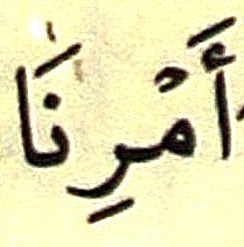 أَمْرِنَا